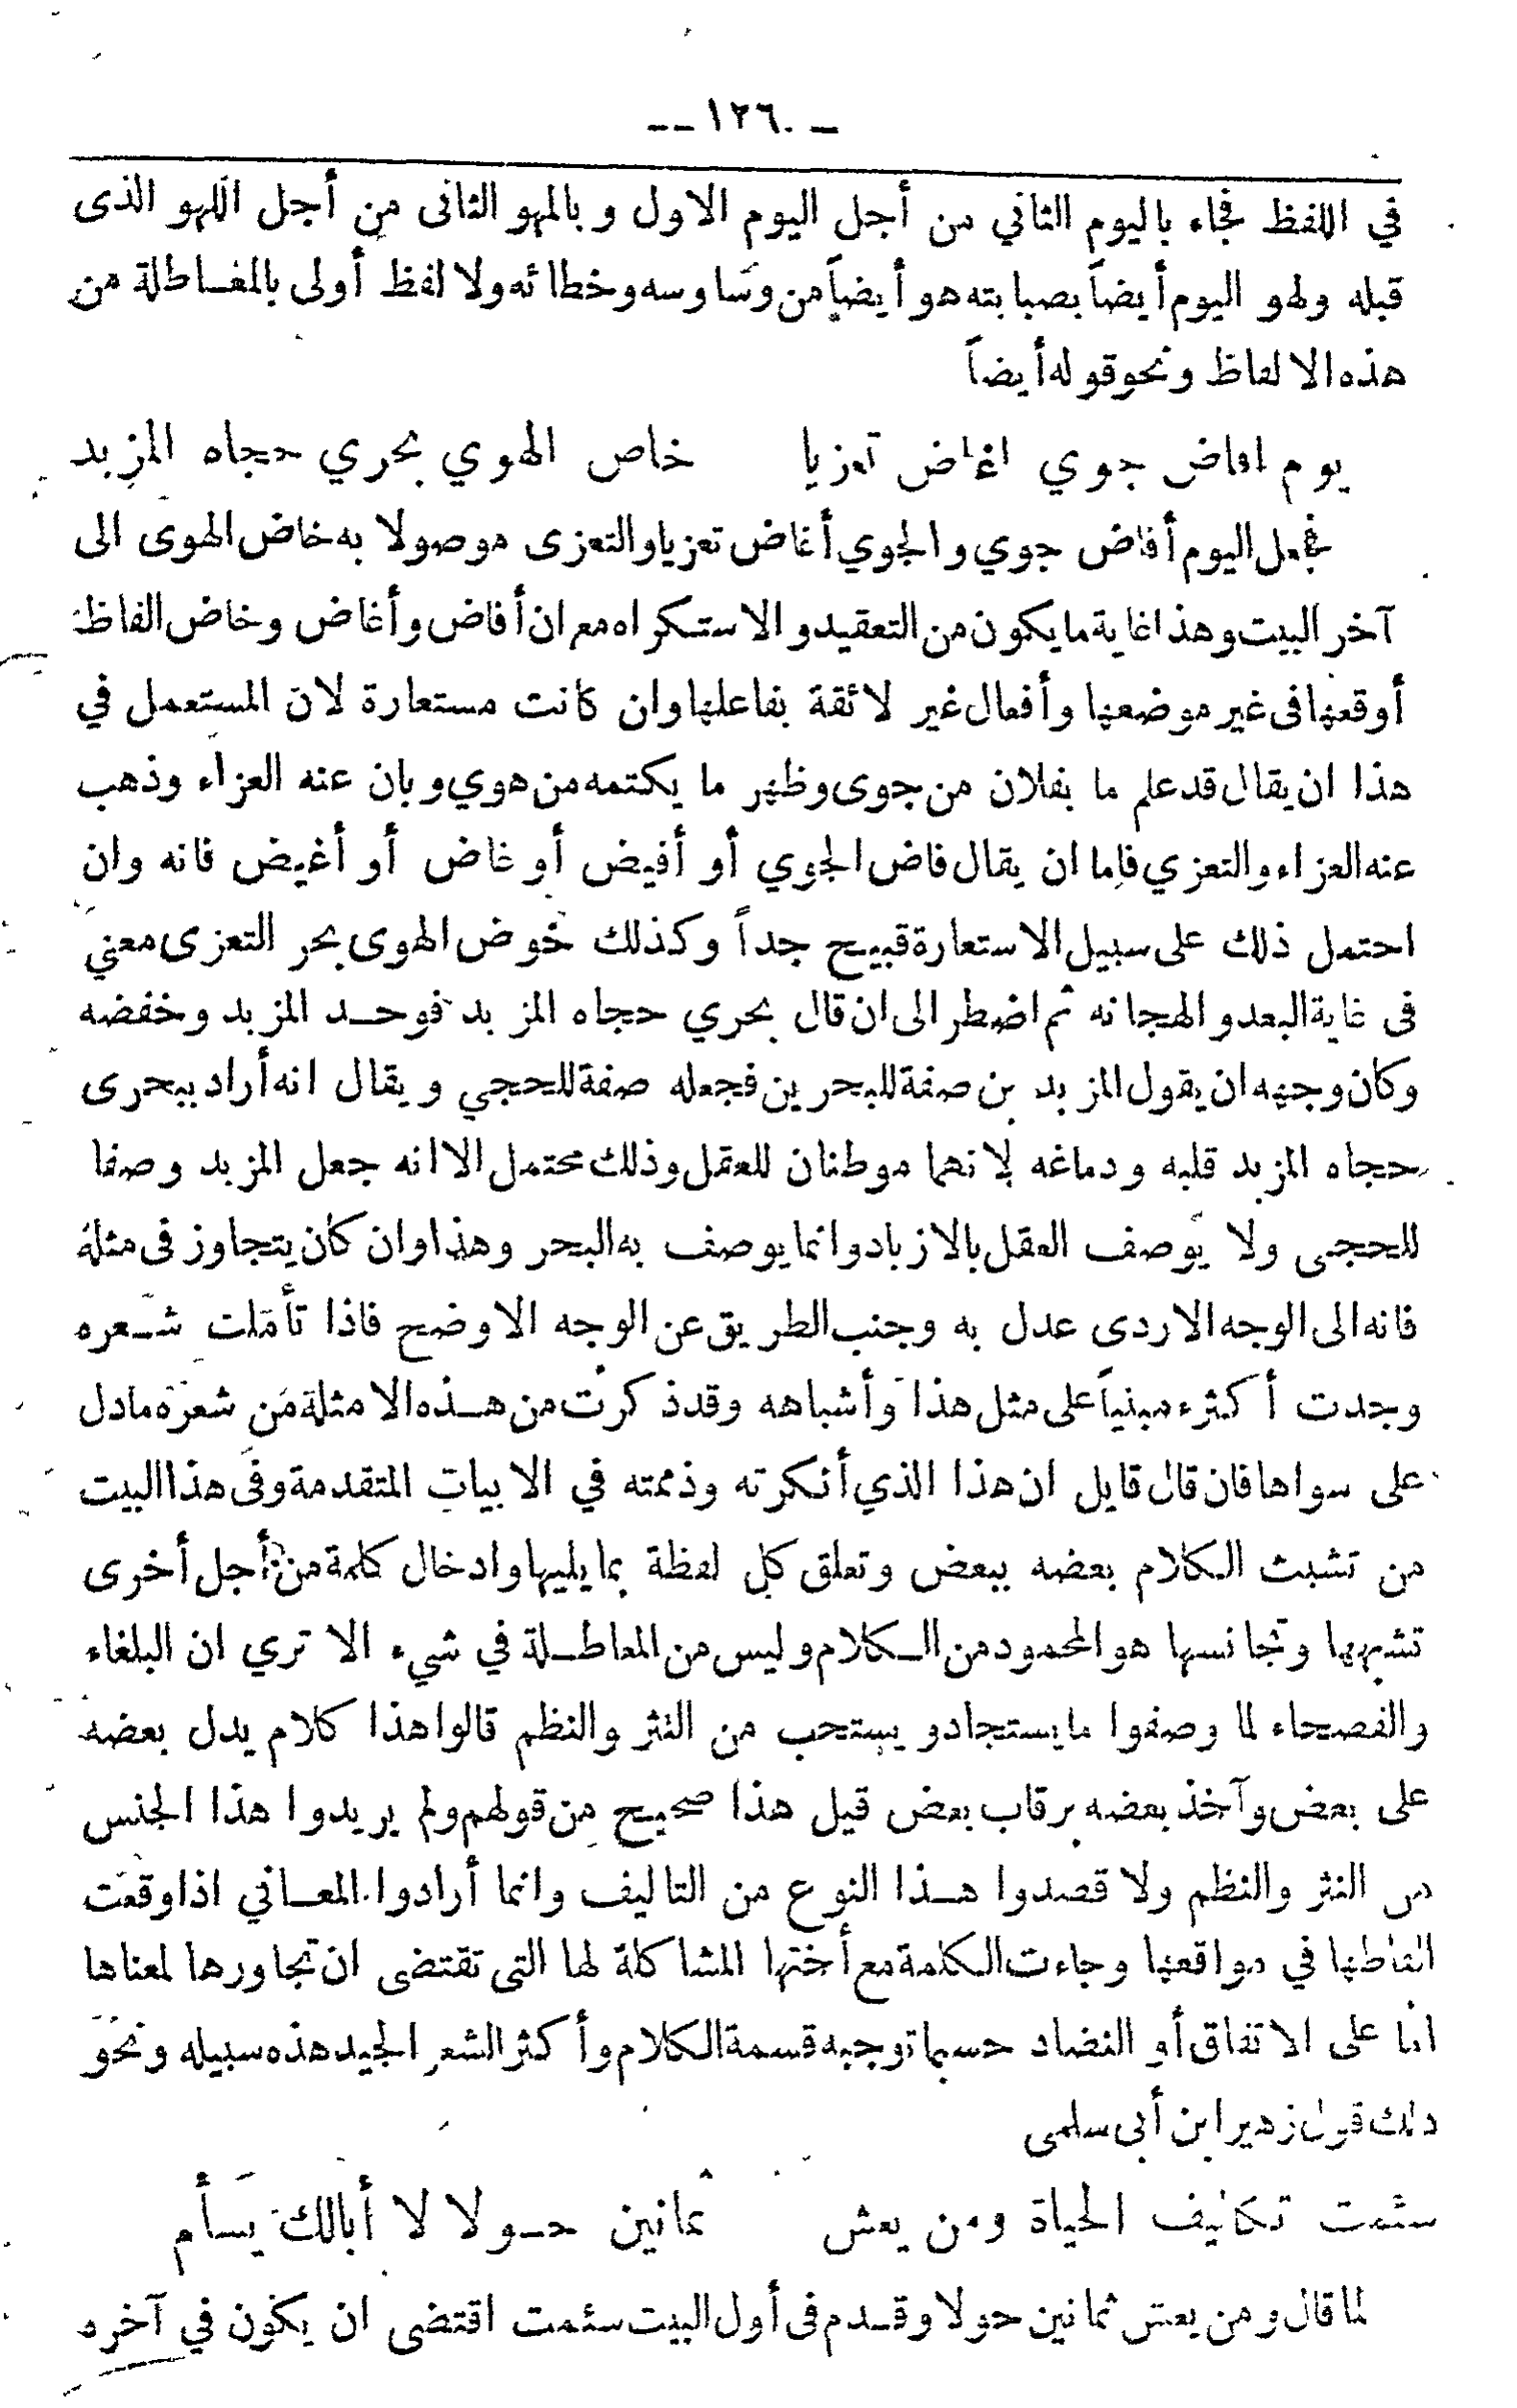 — ١٢٦ —
في اللفظ فجاء باليوم الثاني من أجل اليوم الاول وبالهو الثانى من أجل اللهو الذى
قبله ولهو اليوم أيضاً بصبابته هو أيضاً من وساوسه وخطائه ولا لفظ أولى بالمغاطلة من
هذه الالفاظ ونحو قوله أيضاً
يوم افاض جوي اغاض تعزيا خاص الهوي بحري حجاه المزبد
فجعل اليوم أفاض جوي والجوي أغاض تعزيا والتعزى موصولا به خاض الهوى الى
آخر البيت وهذا غاية ما يكون من التعقيد والاستكراه مع ان أفاض وأغاض وخاض الفاظ
أوقعها فى غير موضعها وأفعال غير لائقة بفاعلها وان كانت مستعارة لان المستعمل في
هذا ان يقال قد علم ما بفلان من جوى وظهر ما يكتمه من هوي وبان عنه العزاء وذهب
عنه العزاء والتعزي فاما ان يقال فاض الجوي أو أفيض أو غاض أو أغيض فانه وان
احتمل ذلك على سبيل الاستعارة قبيح جداً وكذلك خوض الهوى بحر التعزى معني
فى غاية البعد والهجانه ثم اضطر الى ان قال بحري حجاه المزبد فوحد المزبد وخفضه
وكان وجهه ان يقول المزبدين صفة للبحرين فجعله صفة للحجي ويقال انه أراد ببحرى
حجاه المزبد قلبه ودماغه لانهما موطنان للعقل وذلك محتمل الا انه جعل المزبد وصفا
للحجى ولا يوصف العقل بالازباد وانما يوصف به البحر وهذا وان كان يتجاوز فى مثله
فانه الى الوجه الاردى عدل به وجنب الطريق عن الوجه الاوضح فاذا تأملت شعره
وجدت أكثره مبنياً على مثل هذا وأشباهه وقد ذكرت من هذه الامثلة من شعره ما دل
على سواها فان قال قايل ان هذا الذي أنكرته وذممته في الابيات المتقدمة وفى هذا البيت
من تشبث الكلام بعضه ببعض وتعلق كل لفظة بما يليها وادخال كلمة من أجل أخرى
تشبهها وتجانسها هو المحمود من الكلام وليس من المعاطلة في شيء الا تري ان البلغاء
والفصحاء لما وصفوا ما يستجاد ويستحب من النثر والنظم قالوا هذا كلام يدل بعضه
على بعض وآخذ بعضه برقاب بعض قيل هذا صحيح من قولهم ولم يريدوا هذا الجنس
من النثر والنظم ولا قصدوا هذا النوع من التاليف وانما أرادوا المعاني اذا وقعت
الفاظها في مواقعها وجاءت الكلمة مع أختها المشاكلة لها التى تقتضى ان تجاورها لمعناها
اما على الاتفاق أو التضاد حسبما توجبه قسمة الكلام وأكثر الشعر الجيد هذه سبيله ونحو
ذلك قول زهير ابن أبى سلمى
سئمت تكاليف الحياة ومن يعش ثمانين حولا لا أبالك يسأم
لما قال ومن يعش ثمانين حولا وقدم فى أول البيت سئمت اقتضى ان يكون في آخره